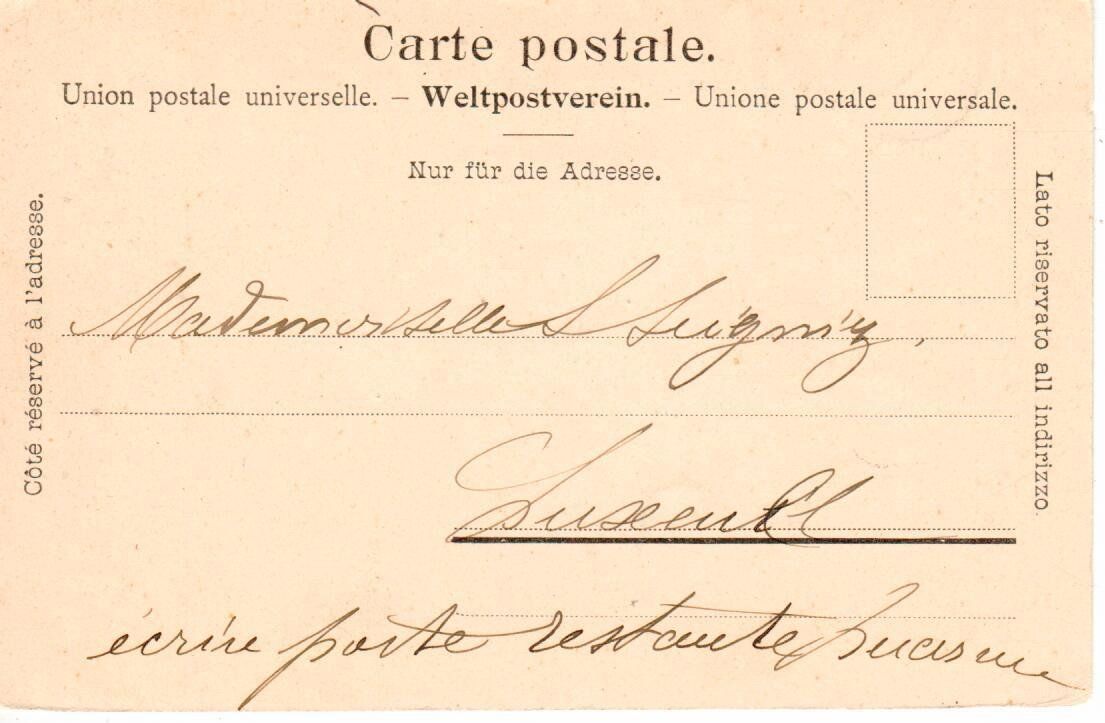 Carte postale.
Union postale universelle. – Weltpostverein. – Unione postale universale.
Nur für die Adresse.
Côté réservé à l'adresse.
Lato riservato all indirizzo.
Mademoiselle
Luxeuil
écrire poste restante